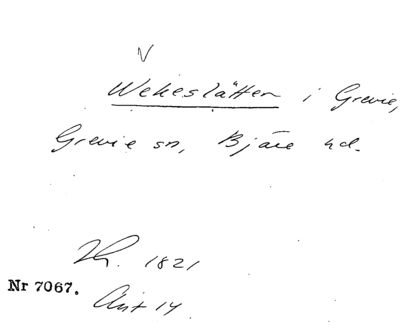 V
Wekeslätten i Grevie,
Grevie sn, Bjäre hd.
1821
Nr 7067.
14